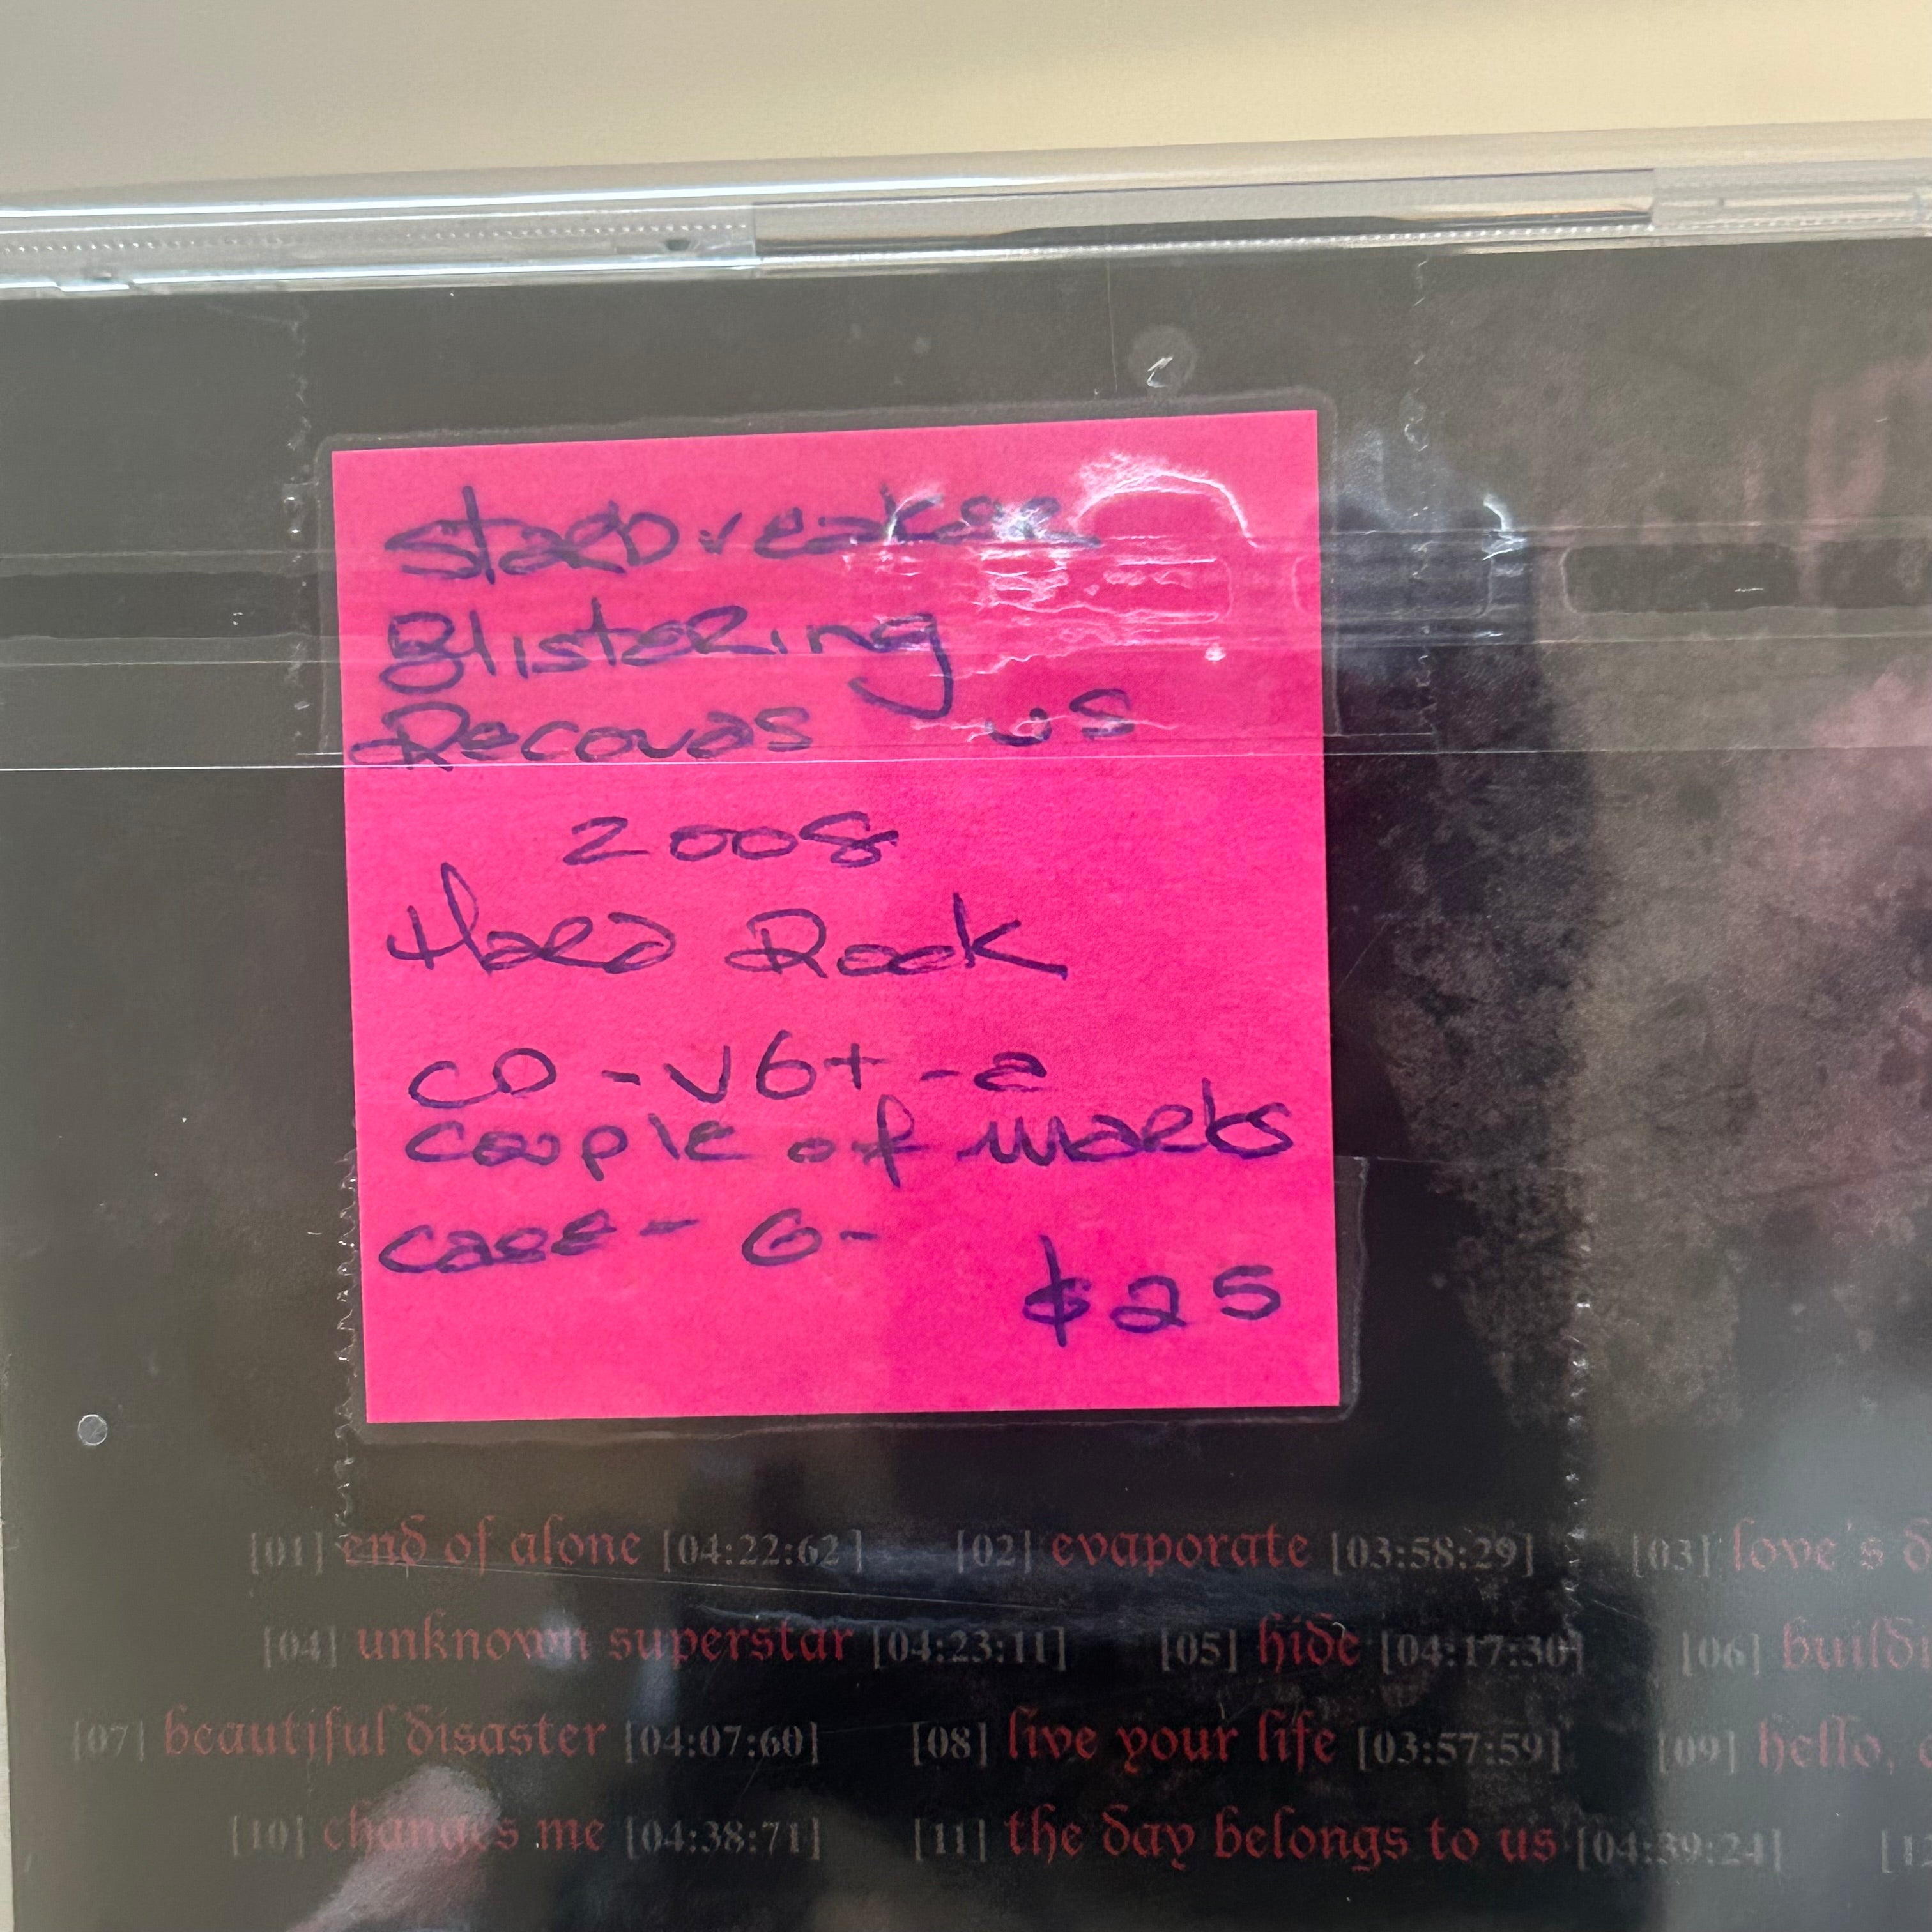 Starbreaker
Blistering
Records US
2008
Hard Rock
CD - VG+ - a
couple of marks
case - G-
$25
[01] end of alone [04:22:62] [02] evaporate [03:58:29] [03] love's
[04] unknown superstar [04:23:11] [05] hide [04:17:30] [06]
[07] beautiful disaster [04:07:60] [08] live your life [03:57:59] [09] hello,
[10] changes me [04:38:71] [11] the day belongs to us [04:39:24]